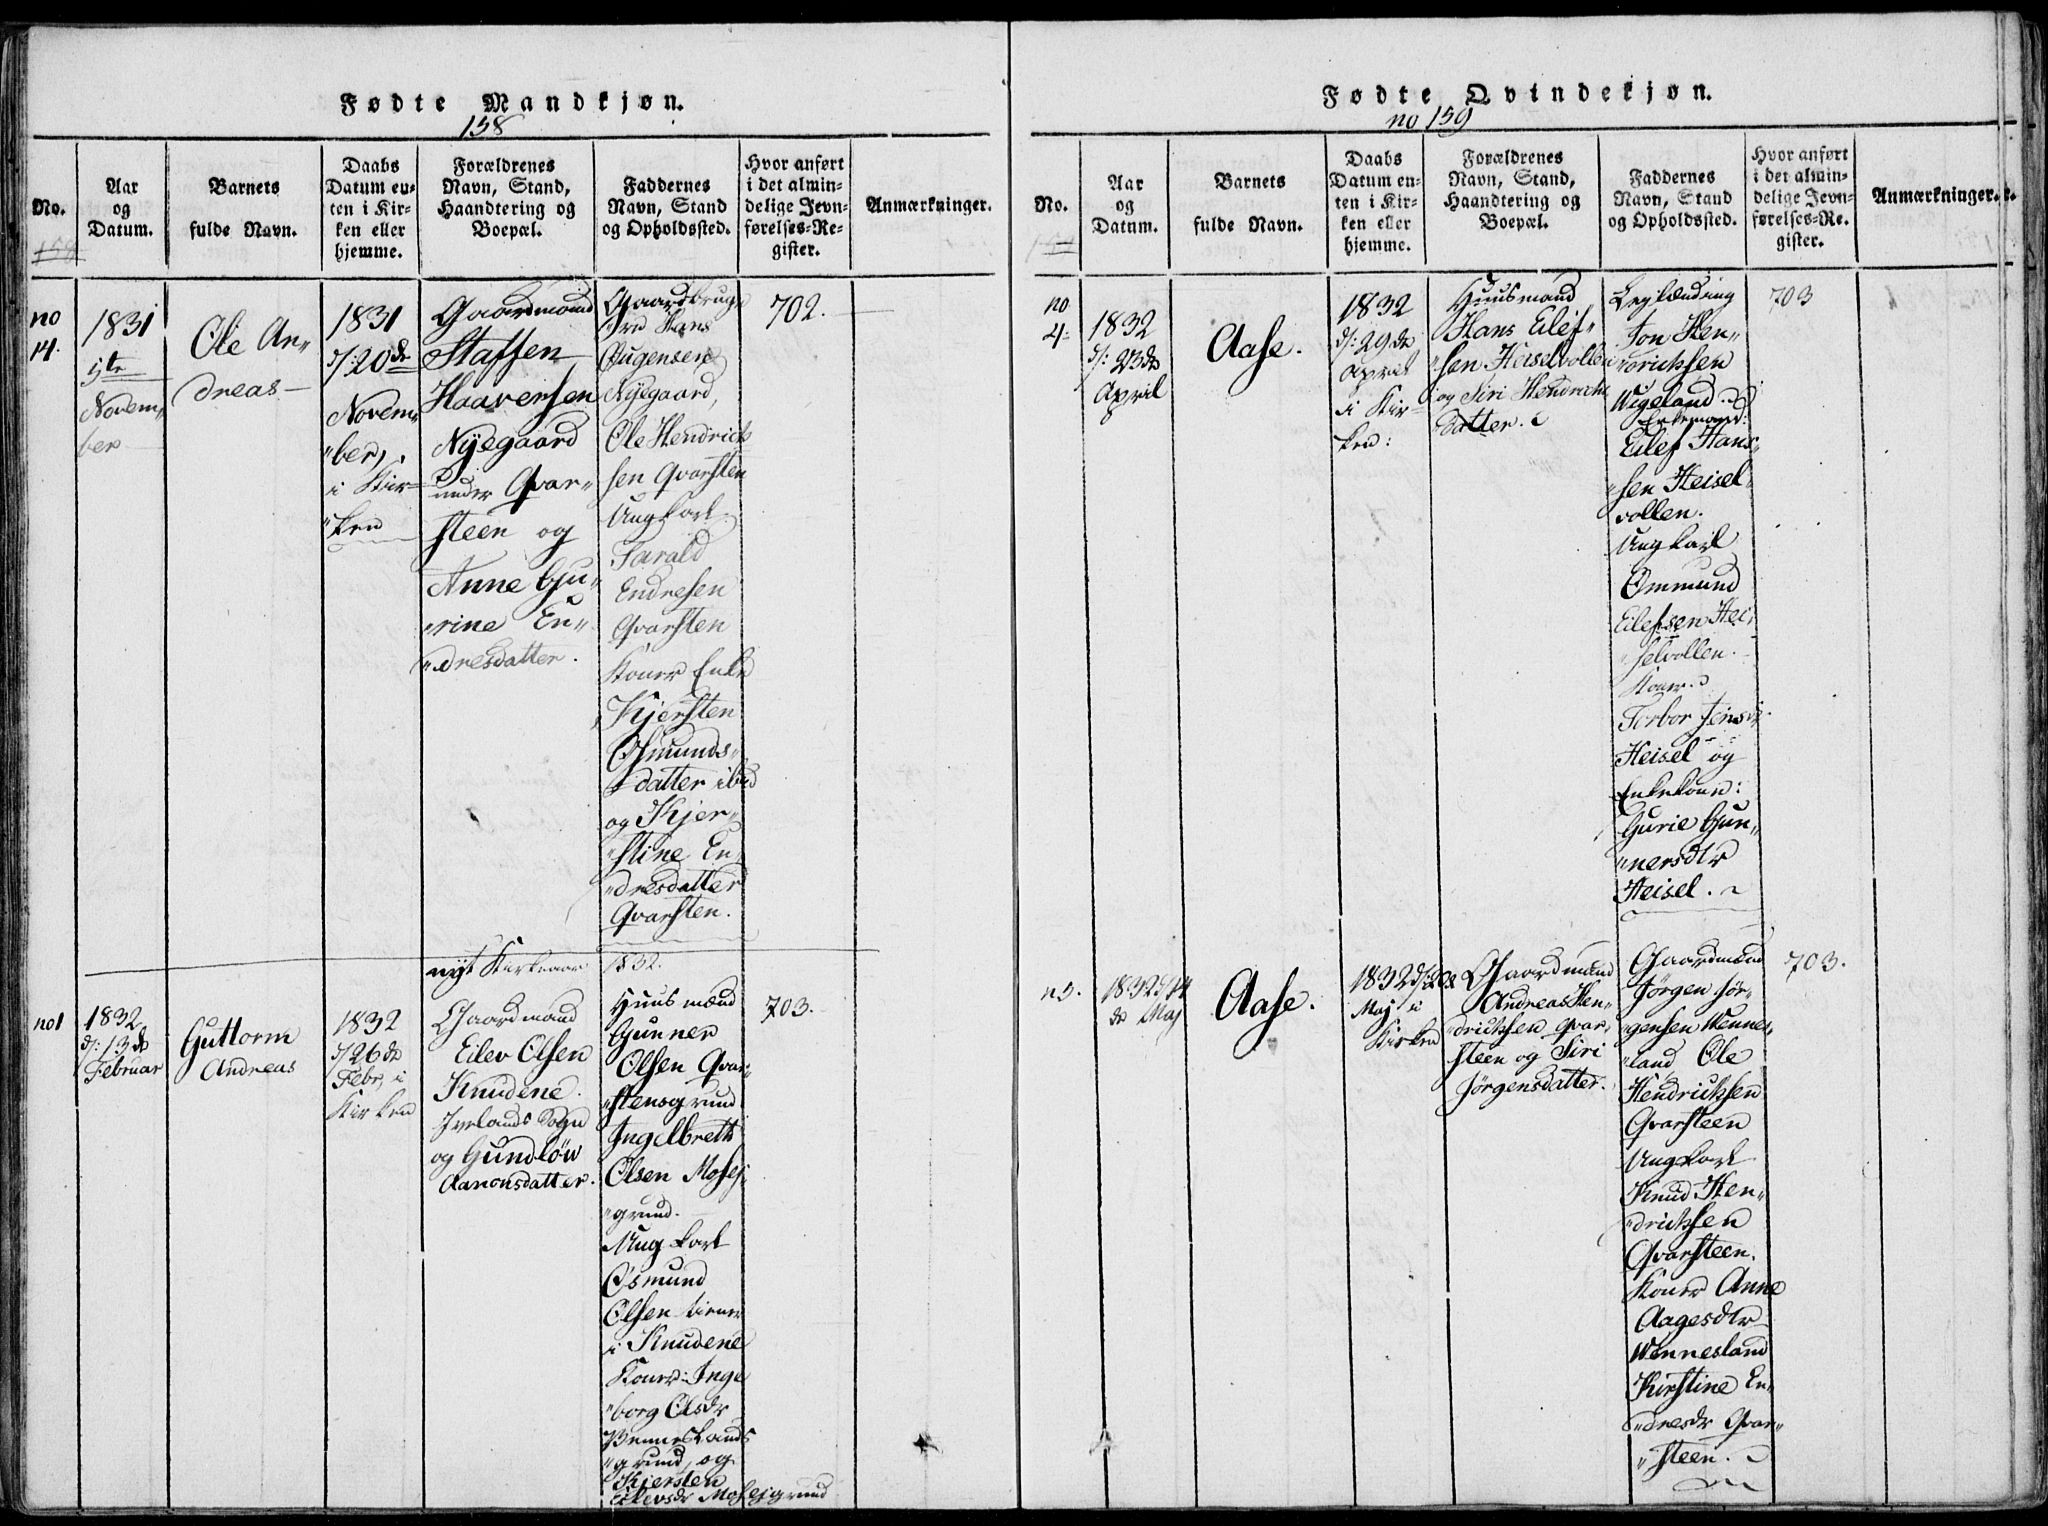 Fødte Mandkjøn.
158
No.
Aar
og
Datum.
Barnets
fulde Navn.
Daabs
Datum en-
ten i Kir-
ken eller
hjemme.
Forældrenes
Navn, Stand,
Haandtering og
Boepæl.
Faddernes
Navn, Stand
og Opholdssted.
Hvor anført
i det almin-
delige Jevn-
førelses-Re-
gister.
Anmærkninger.
no
14.
1831
5te
Novem,
ber
Ole An„
dreas
1831
d/: 20de
Novem„
„ber,
i Kir„
„ken
Gaardmand
Staffen
Haaversen
Nyegaard
under Qvar„
steen og
Anne Gu„
„rine En„
„dresdatter.
Gaardbrug„
Hans
Augensen
Nyegaard,
Ole Hendrick
sen Qvarsten
Ung karl
Tarald
Endresen
Qvarsten
Koner Enke
Kjersten
Osmunds„
datter ibid
og Kjer„
„stine En„
„dresdatter
Qvarsten.
702.
nyt Kirkeaar 1832.
no 1
1832
d/: 13de
Februar
Guttorm
Andreas
1832
d/26de
Febr, i
Kirken
Gaardmand
Eilev Olsen
Knudene.
Ivelands Sogn
og Gundløw
Aanonsdatter.
Huusmand
Gunner
Olsen Qvar„
„stensgrund
Ingelbreth
Olsen Mosej„
„grund.
Ung karl
Osmund
Olsen tiener
i Knudene
Koner: Inge
„borg Olsdr
Vennesland's
„grund, og
Kjersten
Eilevsdr Mosejgrund
703.
Fødte Qvindekjøn.
no 159
No.
Aar
og
Datum.
Barnets
fulde Navn.
Daabs
Datum en-
ten i Kir-
ken eller
hjemme.
Forældrenes
Navn, Stand,
Haandtering og
Boepæl.
Faddernes
Navn, Stand
og Opholdssted.
Hvor anført
i det almin-
delige Jevn-
førelses-Re-
gister.
Anmærkninger.
no
4.
1832
d/: 23de
April
Aase.
1832
d/: 29de
April
i Kir„
ken:
Huusmand
Hans Eilef„
„sen Heiselvollen
og Siri Hendrichs
datter.
Leylænding
Jon Hen„
„drichsen
Wigeland.
Enkemand:
Eilef Hans„
„sen Heisel„
vollen.
Ung karl
Ommund
Eilefsen Hei„
„selvollen.
Koner.
Torbor Jensdr
Heisel og
Enkekone:
Gurie Gun„
„nersdtr
Heisel.
703
n 5.
1832 d/14
de Maj
Aase.
1832 d/: 20de
Maj i
Kirken
Gaardmand
Andreas Hen„
„drichsen Qvar„
steen og Siri
Jørgensdatter.
Gaardmand
Jørgen Jør„
„gensen Wennes„
„land, Ole
Hendrichsen
Qvarsteen
Ung karl
Knud Hen„
„drichsen
Qvarsteen.
Koner Anne
Aagesdtr
Wennesland
Kirstine En„
„dresdr Qvar„
„steen.
703.